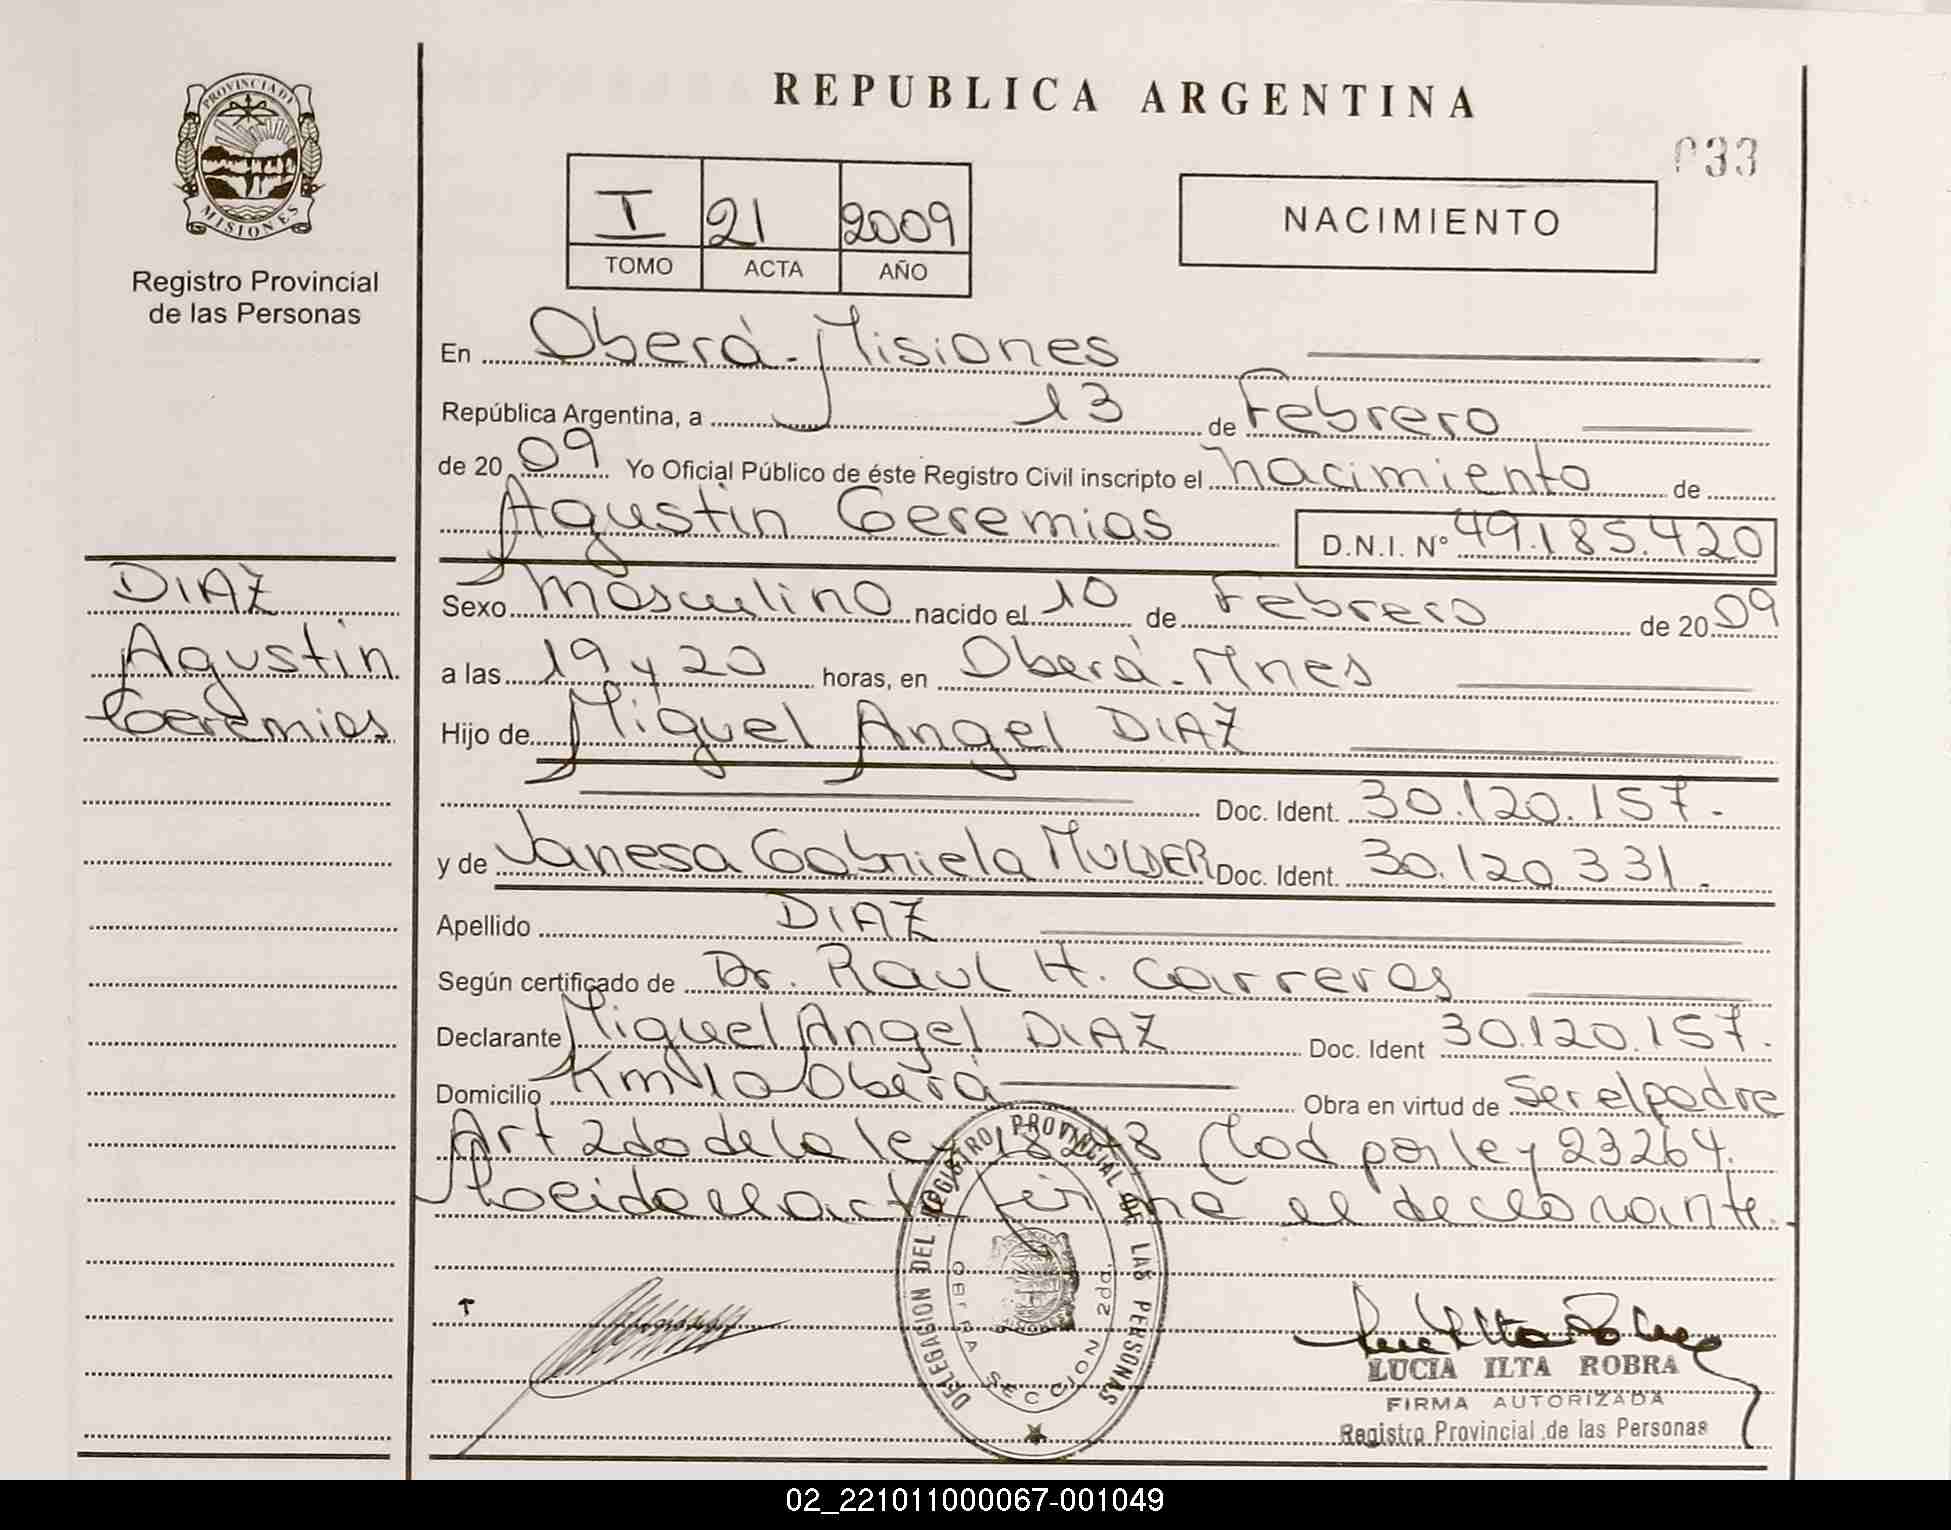 PROVINCIA D
MISIONES
Registro Provincial
de las Personas
REPUBLICA ARGENTINA
033
I 21 2009
TOMO ACTA AÑO
NACIMIENTO
En Oberá - Misiones
República Argentina, a 13 de Febrero
de 20 09 Yo Oficial Público de éste Registro Civil inscripto el nacimiento de
Agustin Geremias D.N.I. Nº 49.185.420
DIAZ
Agustin
Geremias
Sexo masculino nacido el 10 de Febrero de 20 09
a las 19 y 20 horas, en Oberá - Mnes
Hijo de Miguel Angel DIAZ
Doc. Ident. 30.120.157.
y de Vanesa Gabriela MULDER Doc. Ident. 30.120.331.
Apellido DIAZ
Según certificado de Dr. Raul H. Carreras
Declarante Miguel Angel DIAZ Doc. Ident 30.120.157.
Domicilio Km 10 Oberá Obra en virtud de Ser el padre
Art 2do de la ley 18248 Mod por ley 23264.
Leida el acta firma el declarante.
DELEGACION DEL REGISTRO PROVINCIAL DE LAS PERSONAS
OBERA SECCION 2da.
LUCIA ILTA ROBRA
FIRMA AUTORIZADA
Registro Provincial de las Personas
02_221011000067-001049